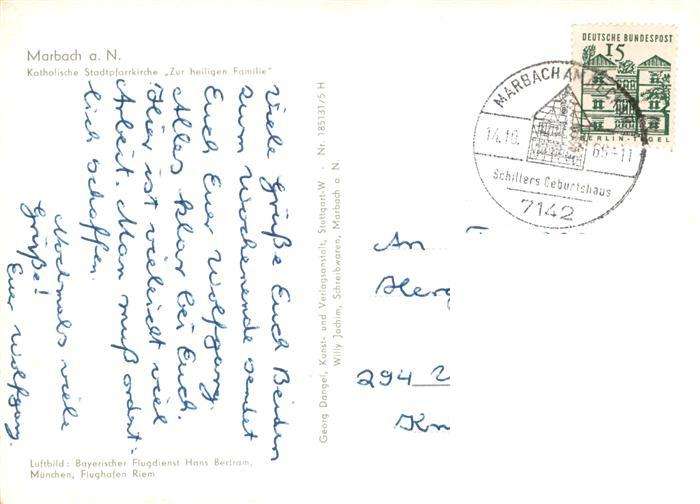 Marbach a. N.
Katholische Stadtpfarrkirche „Zur heiligen Familie"
Viele Grüße Euch Beiden
zum Wochenende sendet
Euch Euer Wolfgang.
Alles klar bei Euch.
Hier ist vieleicht viel
Arbeit. Man muß ordent-
lich schaffen.
Nochmals viele
Grüße!
Euer Wolfgang.
Luftbild: Bayerischer Flugdienst Hans Bertram,
München, Flughafen Riem
Georg Dangel, Kunst- und Verlagsanstalt, Stuttgart-W · Nr. 185131/5 H
Willy Jachim, Schreibwaren, Marbach a. N.
DEUTSCHE BUNDESPOST
15
BERLIN-TEGEL
MARBACH AM
14.10. 66-11
Schillers Geburtshaus
7142
An
294